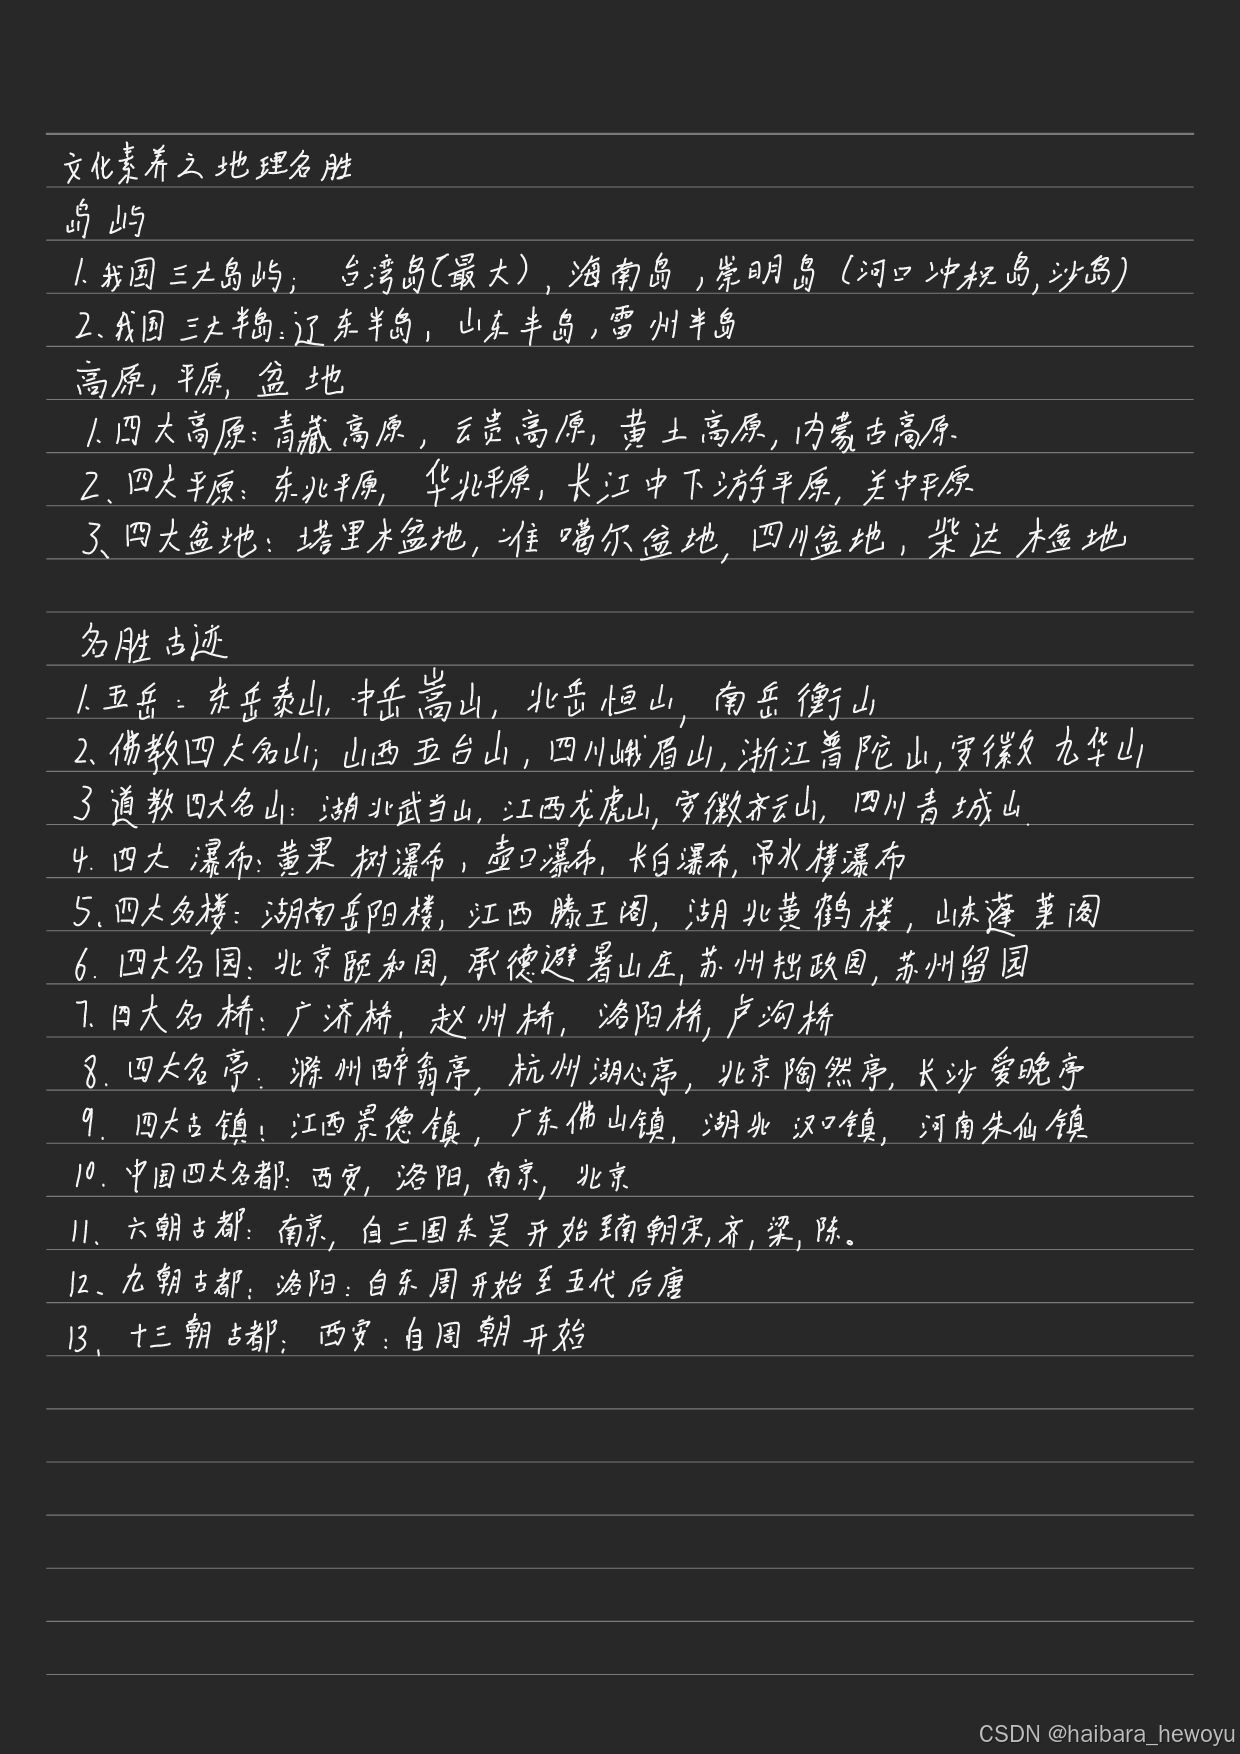 文化素养之地理名胜
岛屿
1.我国三大岛屿; 台湾岛(最大),海南岛,崇明岛(河口冲积岛,沙岛)
2、我国三大半岛:辽东半岛,山东半岛,雷州半岛
高原,平原,盆地
1.四大高原:青藏高原,云贵高原,黄土高原,内蒙古高原.
2、四大平原:东北平原,华北平原,长江中下游平原,关中平原
3、四大盆地:塔里木盆地,准噶尔盆地,四川盆地,柴达木盆地
名胜古迹
1.五岳:东岳泰山,中岳嵩山,北岳恒山,南岳衡山
2、佛教四大名山;山西五台山,四川峨眉山,浙江普陀山,安徽九华山
3 道教四大名山:湖北武当山,江西龙虎山,安徽齐云山,四川青城山.
4.四大瀑布:黄果树瀑布,壶口瀑布,长白瀑布,吊水楼瀑布
5.四大名楼:湖南岳阳楼,江西滕王阁,湖北黄鹤楼,山东蓬莱阁
6.四大名园:北京颐和园,承德避暑山庄,苏州拙政园,苏州留园
7.四大名桥:广济桥,赵州桥,洛阳桥,卢沟桥
8.四大名亭:滁州醉翁亭,杭州湖心亭,北京陶然亭,长沙爱晚亭
9.四大古镇:江西景德镇,广东佛山镇,湖北汉口镇,河南朱仙镇
10.中国四大名都:西安,洛阳,南京,北京
11、六朝古都:南京,自三国东吴开始至南朝宋,齐,梁,陈。
12、九朝古都:洛阳:自东周开始至五代后唐
13、十三朝古都:西安:自周朝开始
CSDN @haibara_hewoyu